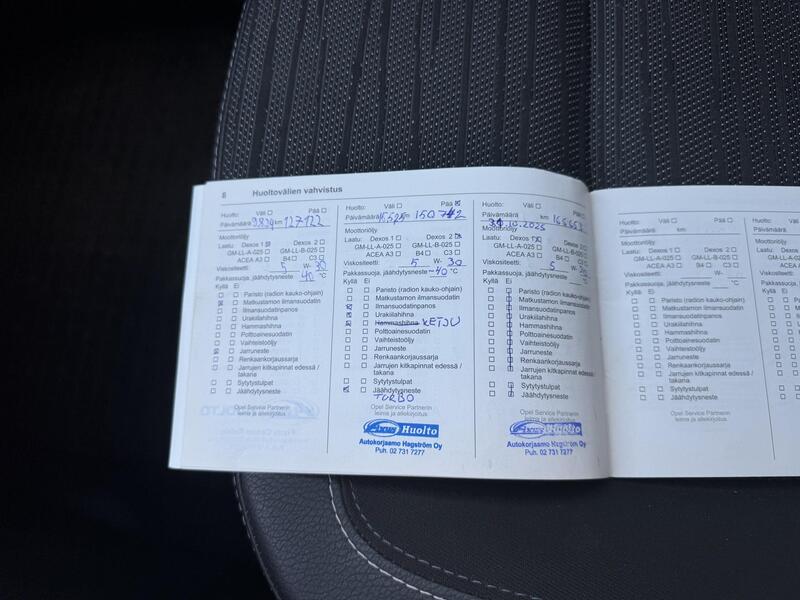 8 Huoltovälien vahvistus
Huolto: Väli Pää
Päivämäärä km 127122
Moottoriöljy
Laatu: Dexos 1 Dexos 2
GM-LL-A-025 GM-LL-B-025
ACEA A3 B4 C3
Viskositeetti: 5 W- 30
Pakkassuoja, jäähdytysneste 40 °C
Kyllä Ei
Paristo (radion kauko-ohjain)
Matkustamon ilmansuodatin
Ilmansuodatinpanos
Urakiilahihna
Hammashihna
Polttoainesuodatin
Vaihteistoöljy
Jarruneste
Renkaankorjaussarja
Jarrujen kitkapinnat edessä /
takana
Sytytystulpat
Jäähdytysneste
Opel Service Partnerin
leima ja allekirjoitus
Huolto: Väli Pää
Päivämäärä km 150742
Moottoriöljy
Laatu: Dexos 1 Dexos 2
GM-LL-A-025 GM-LL-B-025
ACEA A3 B4 C3
Viskositeetti: 5 W- 30
Pakkassuoja, jäähdytysneste -40 °C
Kyllä Ei
Paristo (radion kauko-ohjain)
Matkustamon ilmansuodatin
Ilmansuodatinpanos
Urakiilahihna
Hammashihna KETJU
Polttoainesuodatin
Vaihteistoöljy
Jarruneste
Renkaankorjaussarja
Jarrujen kitkapinnat edessä /
takana
Sytytystulpat
Jäähdytysneste
TURBO
Opel Service Partnerin
leima ja allekirjoitus
Huolto
Autokorjaamo Hagström Oy
Puh. 02 731 7277
Huolto: Väli Pää
Päivämäärä 31.10.2025 km
Moottoriöljy
Laatu: Dexos 1 Dexos 2
GM-LL-A-025 GM-LL-B-025
ACEA A3 B4 C3
Viskositeetti: 5 W- 30
Pakkassuoja, jäähdytysneste °C
Kyllä Ei
Paristo (radion kauko-ohjain)
Matkustamon ilmansuodatin
Ilmansuodatinpanos
Urakiilahihna
Hammashihna
Polttoainesuodatin
Vaihteistoöljy
Jarruneste
Renkaankorjaussarja
Jarrujen kitkapinnat edessä /
takana
Sytytystulpat
Jäähdytysneste
Opel Service Partnerin
leima ja allekirjoitus
Huolto
Autokorjaamo Hagström Oy
Puh. 02 731 7277
Huolto: Väli Pää
Päivämäärä km
Moottoriöljy
Laatu: Dexos 1 Dexos 2
GM-LL-A-025 GM-LL-B-025
ACEA A3 B4 C3
Viskositeetti: W-
Pakkassuoja, jäähdytysneste °C
Kyllä Ei
Paristo (radion kauko-ohjain)
Matkustamon ilmansuodatin
Ilmansuodatinpanos
Urakiilahihna
Hammashihna
Polttoainesuodatin
Vaihteistoöljy
Jarruneste
Renkaankorjaussarja
Jarrujen kitkapinnat edessä /
takana
Sytytystulpat
Jäähdytysneste
Opel Service Partnerin
leima ja allekirjoitus
Huolto:
Päivämäärä
Moottoriöljy
Laatu:
Kyllä Ei